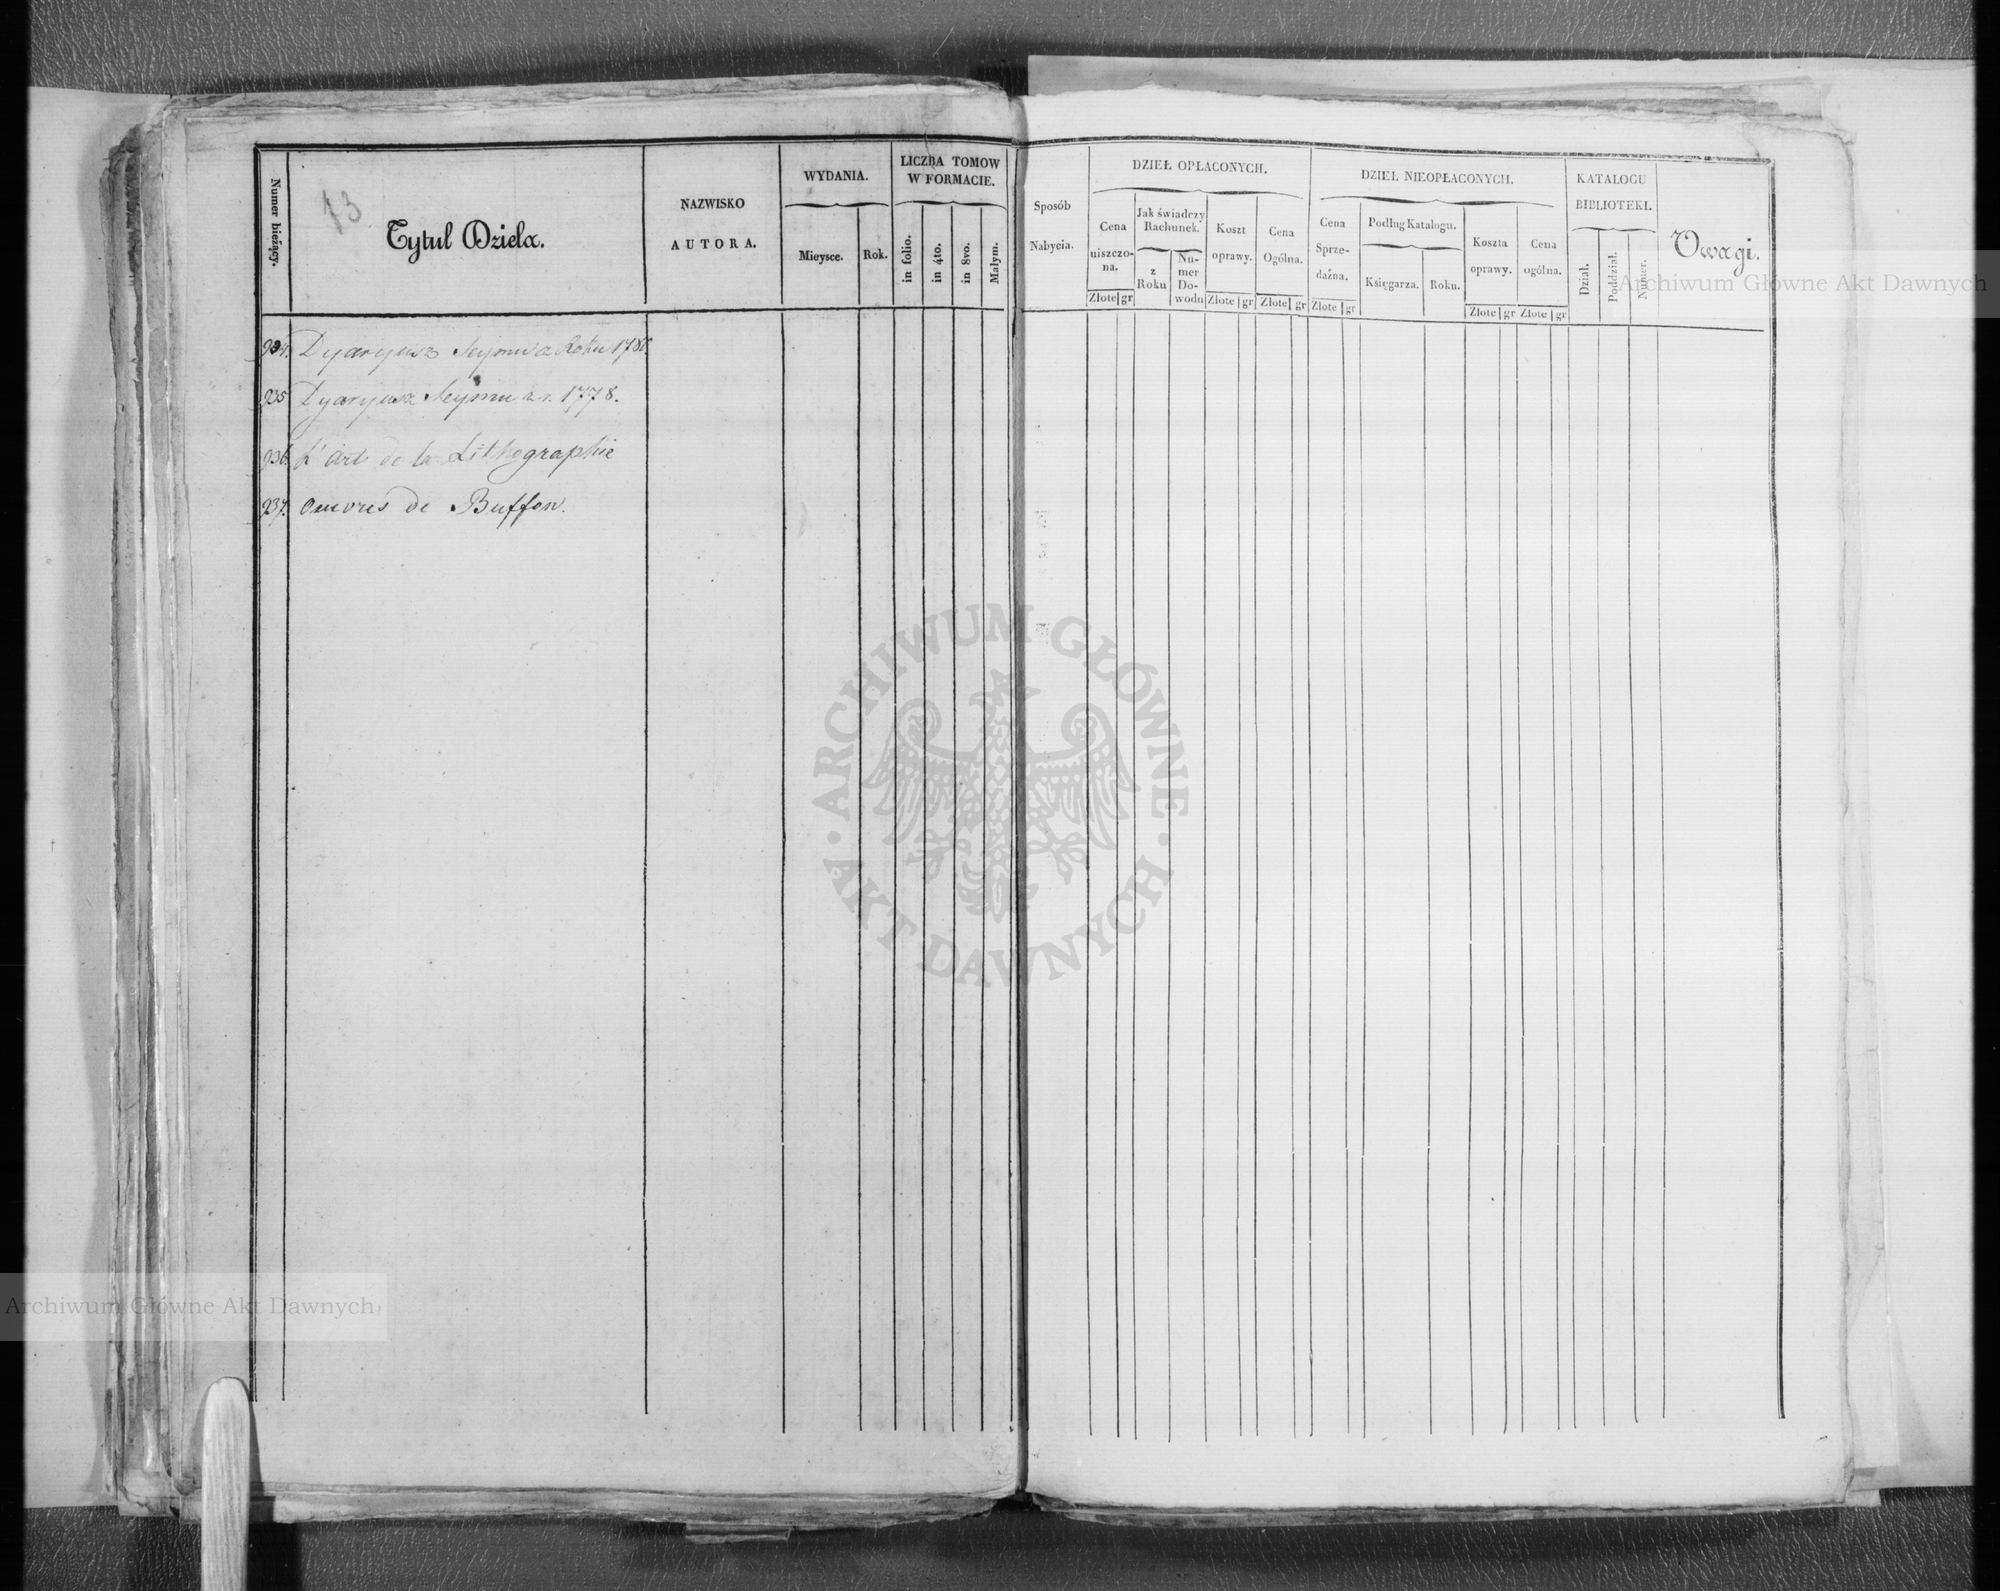 73
Numer bieżący.
Tytuł Dzieła.
NAZWISKO
AUTORA.
WYDANIA.
Mieysce.
Rok.
LICZBA TOMOW
W FORMACIE.
in folio.
in 4to.
in 8vo.
Małym.
Sposób
Nabycia.
DZIEŁ OPŁACONYCH.
Cena
uiszczo-
na.
Złote gr
Jak świadczy
Rachunek.
z
Roku
Nu-
mer
Do-
wodu
Koszt
oprawy.
Złote gr
Cena
Ogólna.
Złote gr
DZIEŁ NIEOPŁACONYCH.
Cena
Sprze-
dażna.
Złote gr
Podług Katalogu.
Księgarza.
Roku.
Koszta
oprawy.
Złote gr
Cena
ogólna.
Złote gr
KATALOGU
BIBLIOTEKI.
Dział.
Poddział.
Numer.
Uwagi.
934. Dyaryusz Seymu z Roku 1786.
935 Dyaryusz Seymu z r. 1778.
936. L'Art de la Lithographie
937. Oeuvres de Buffon.
Archiwum Główne Akt Dawnych
ARCHIWUM GŁÓWNE
AKT DAWNYCH
Archiwum Główne Akt Dawnych